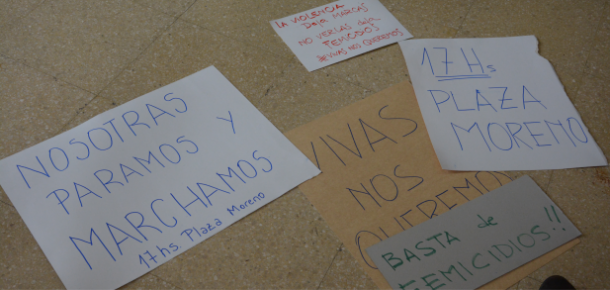 LA VIOLENCIA
DEJA MARCAS
NO VERLAS deja
FEMICIDIOS
¡VIVAS NOS QUEREMOS
17 Hs
PLAZA
MORENO
NOSOTRAS
PARAMOS Y
MARCHAMOS
17hs. Plaza Moreno
VIVAS
NOS
QUEREMOS
BASTA de
FEMICIDIOS!!